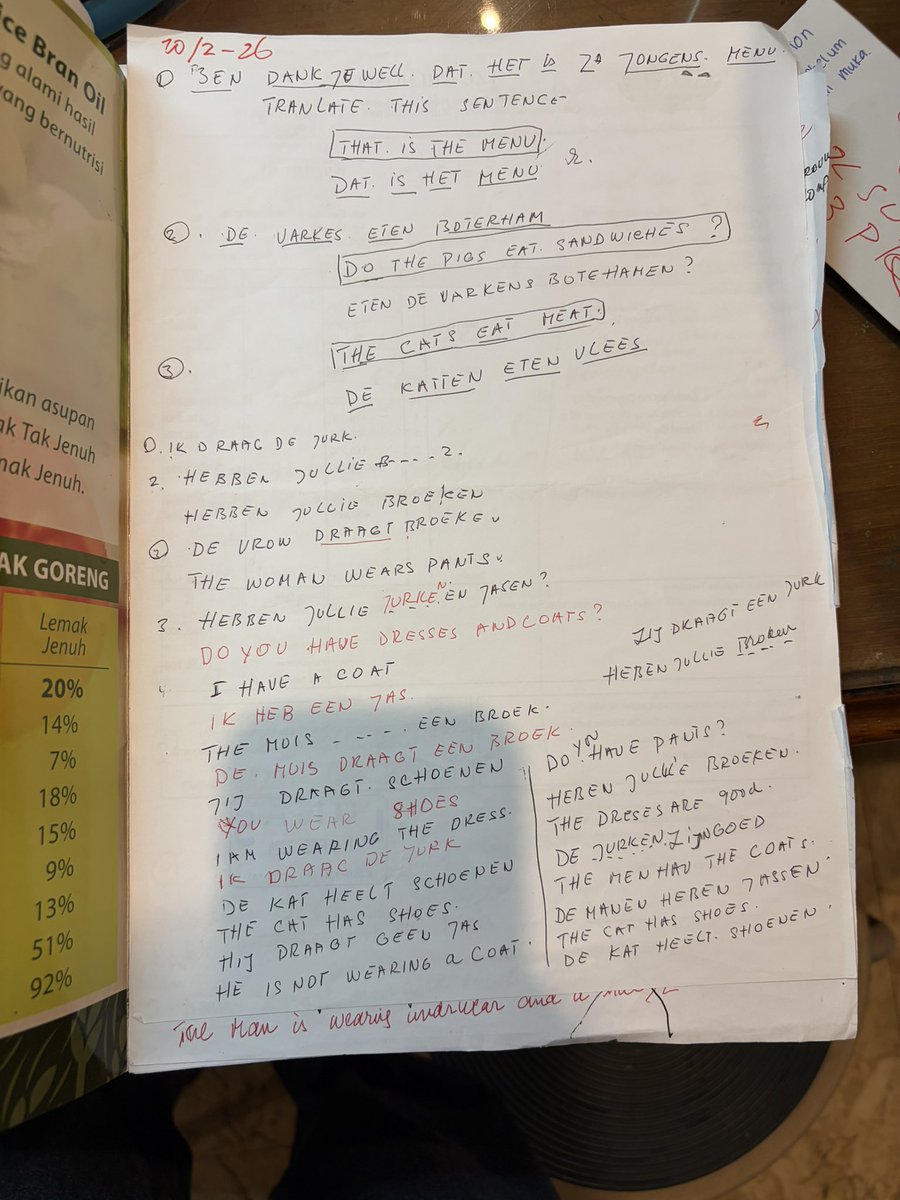 ice Bran Oil
g alami hasil
yang bernutrisi
ikan asupan
ak Tak Jenuh
nak Jenuh.
AK GORENG
Lemak
Jenuh
20%
14%
7%
18%
15%
9%
13%
51%
92%
20/2-26
1 BEN DANK JE WELL. DAT. HET IS JONGENS. MENU.
TRANLATE. THIS SENTENCE
THAT. IS THE MENU.
DAT. IS HET MENU
2. DE. VARKES. ETEN BOTERHAM
DO THE PIGS EAT. SANDWICHES ?
ETEN DE VARKENS BOTEHAMEN ?
3. THE CATS EAT MEAT.
DE KATTEN ETEN VLEES
1. IK DRAAG DE JURK.
2. HEBBEN JULLIE B---- ?.
HEBBEN JULLIE BROEKEN
2 DE VROW DRAAGT BROEKE.
THE WOMAN WEARS PANTS.
3. HEBBEN JULLIE JURKEN. EN JASEN?
DO YOU HAVE DRESSES AND COATS?
4 I HAVE A COAT
IK HEB EEN JAS.
THE MUIS ----. EEN BROEK.
DE. MUIS DRAAGT EEN BROEK.
JIJ DRAAGT. SCHOENEN
YOU WEAR SHOES
I AM WEARING THE DRESS.
IK DRAAG DE JURK
DE KAT HEELT SCHOENEN
THE CAT HAS SHOES.
HIJ DRAAGT GEEN JAS
HE IS NOT WEARING a COAT.
ZIJ DRAAGT EEN JURK
HEBEN JULLIE Broken
DO YOU HAVE PANTS?
HEBEN JULLIE BROEKEN.
THE DRESES ARE good.
DE JURKEN. ZIJN GOED
THE MEN HAV THE COATS.
DE MANEN HEBEN JASSEN.
THE CAT HAS SHOES.
DE KAT HEELT. SHOENEN.
The Man is wearing undrwear and a
muka.